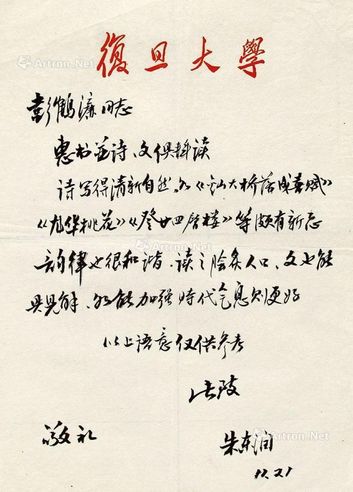 復旦大學
彭鶴濂同志
惠书并诗、文俱拜读
诗写得清新自然,如《大桥落成喜赋》
《桃花》《登廿四层楼》等颇有新意
韵律也很和谐,读之脍炙人口,文也能
具见解,如能加强时代气息则更好
以上语意仅供参考
此致
敬礼
朱东润
12.21
Artron.Net